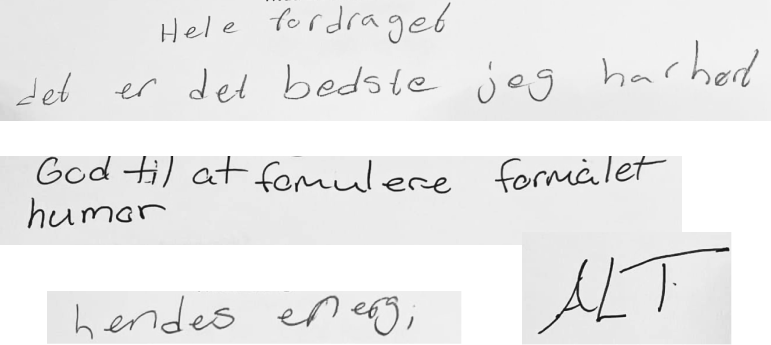 Hele fordraget
det er det bedste jeg har hørt
God til at fomulere formålet
humor
hendes energi
ALT